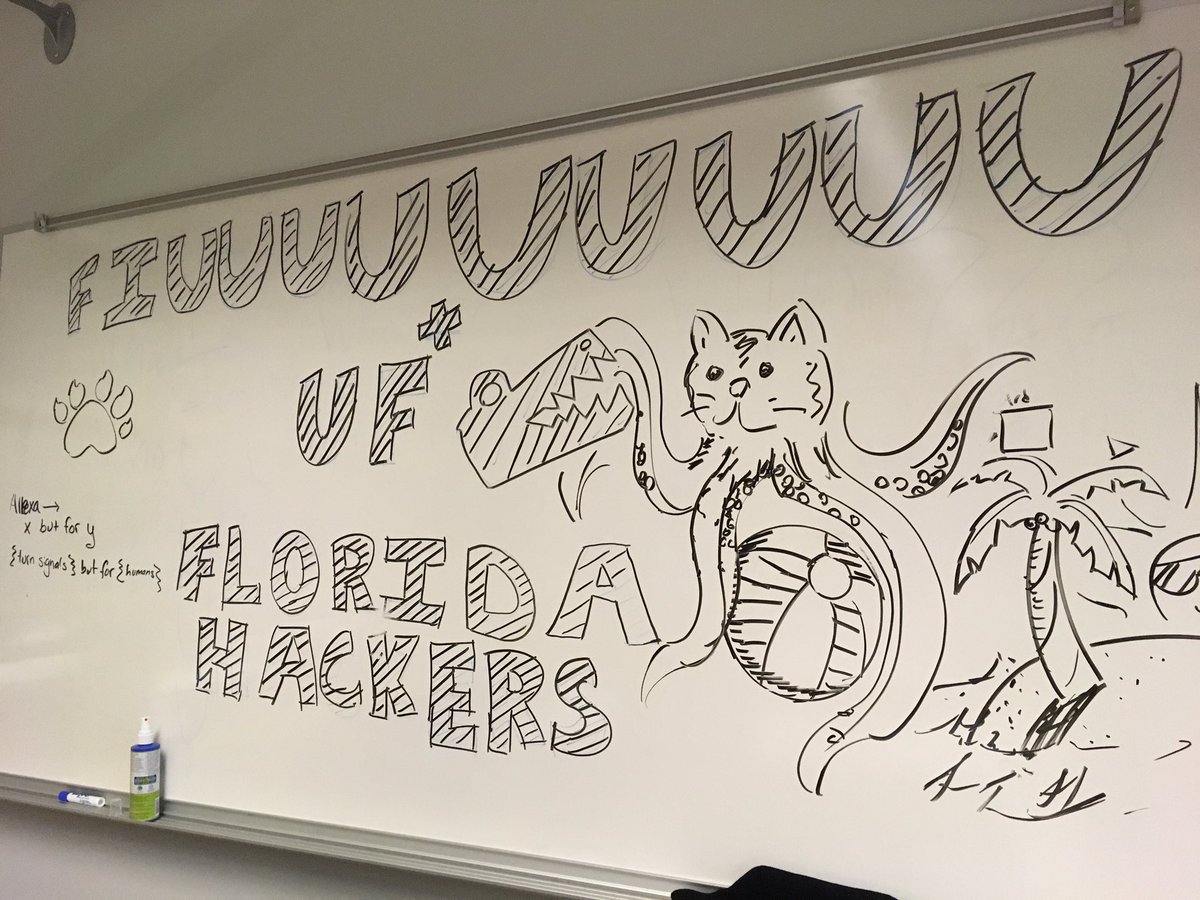 FIUUUUUUUUU
UF+
Alexa →
x but for y
{turn signals} but for {humans}
FLORIDA
HACKERS